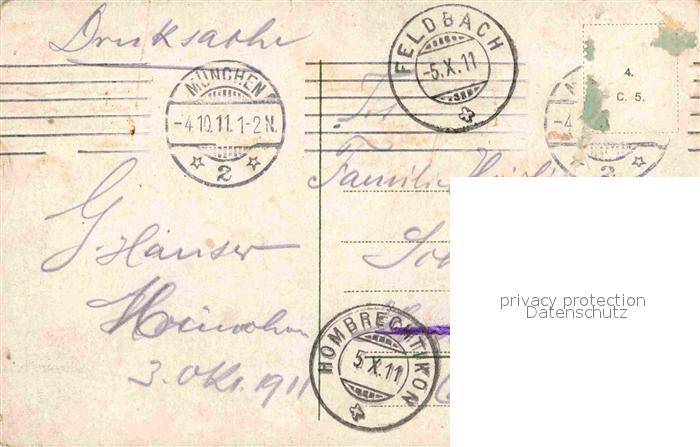 Drucksache
MÜNCHEN
-4.10.11.1-2N.
2
FELDBACH
-5.X.11
4.
C. 5.
Familie
G. Hauser
München
3. Okt. 1911
HOMBRECHTIKON
5.X.11
privacy protection
Datenschutz